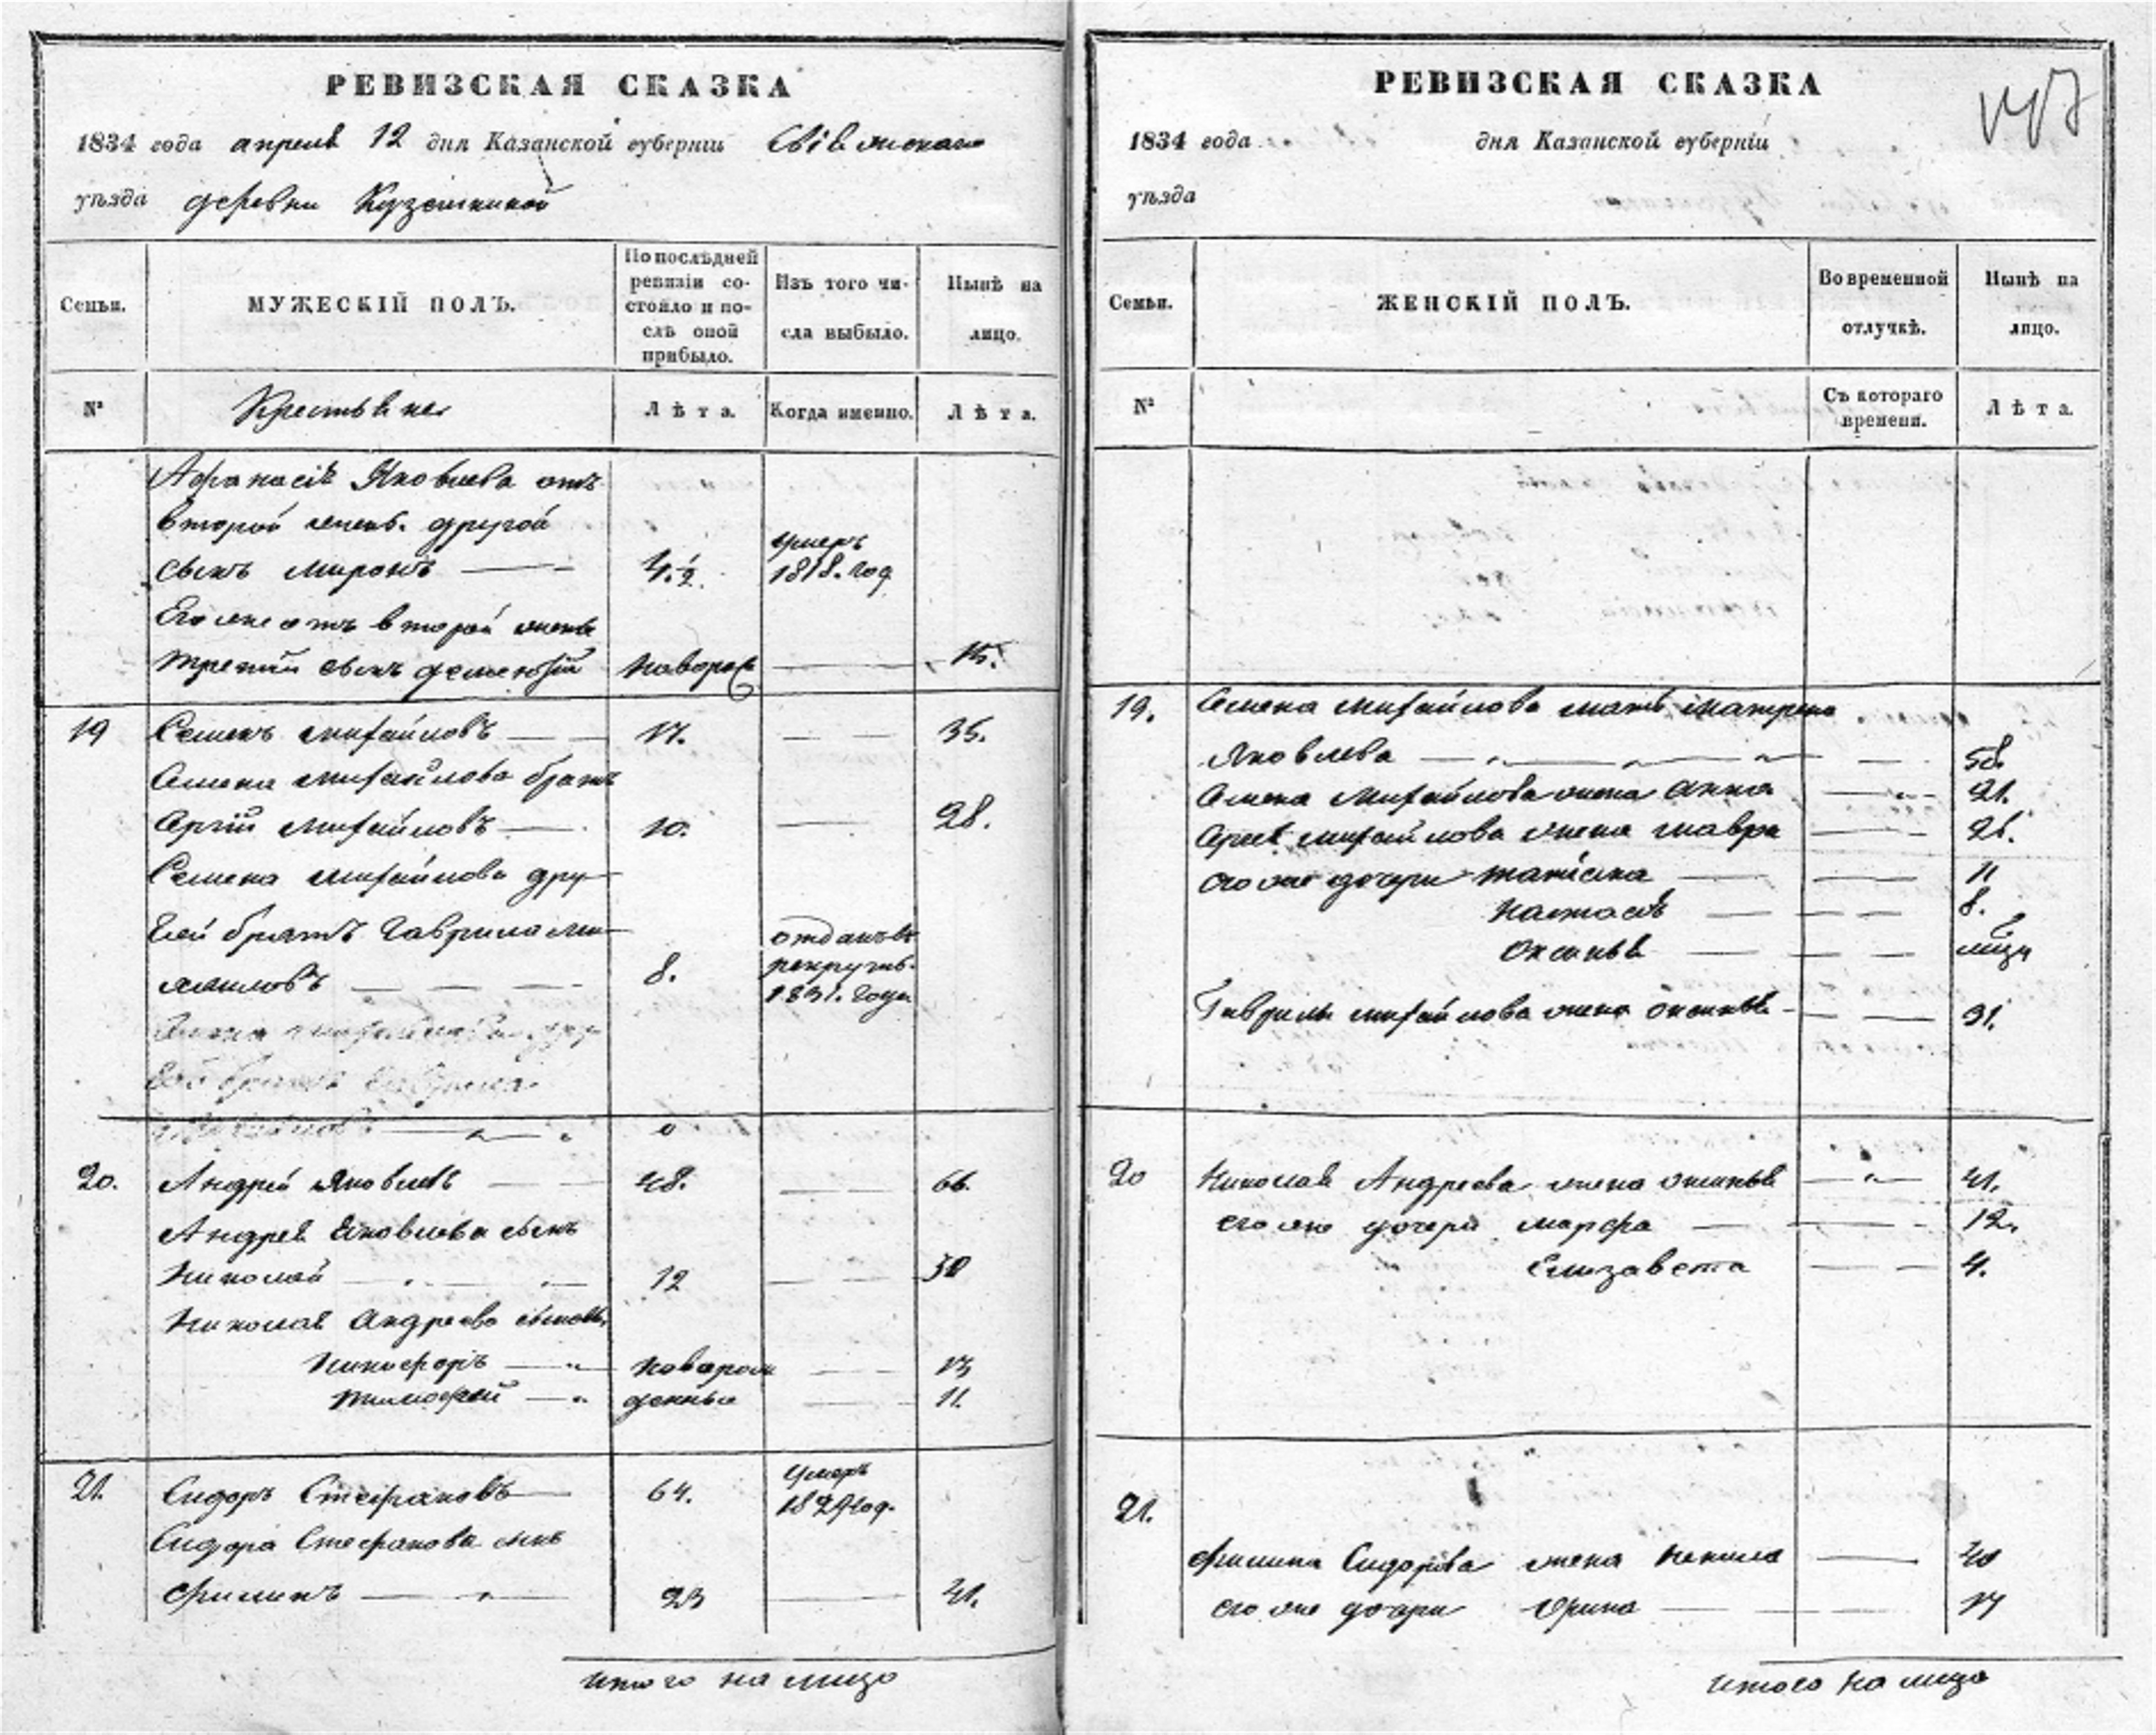 РЕВИЗСКАЯ СКАЗКА
1834 года апреля 12 дня Казанской губерніи Свіяжскаго
уѣзда деревни
Семьи.
МУЖЕСКІЙ ПОЛЪ.
По послѣдней ревизіи состояло и послѣ оной прибыло.
Изъ того числа выбыло.
Нынѣ на лицо.
№
Крестьяне
Лѣта.
Когда именно.
Лѣта.
Афанасія Яковлева отъ
второй жены другой
сынъ Миронъ — 4 ½ умеръ 1818. год
Его же отъ второй жены
третій сынъ новорож — 15.
19 Семенъ Михайловъ — 17. — 35.
Семена Михайлова братъ
Сергій Михайловъ — 10. — 28.
Семена Михайлова дру-
гой братъ Гаврила Ми-
хайловъ — 8. отданъ въ рекруты 1831. года
20. Андрей Яковлевъ — 48. — 66.
Андрея Яковлева сынъ
Николай — 12 — 30
Николая Андреева сыновья
Никифоръ — новорож — 13
Тимофей — денные — 11.
21. Сидоръ Стефановъ — 64. умеръ год.
Сидора Стефанова сынъ
Филипъ — 23 — 41.
итого на лицо
РЕВИЗСКАЯ СКАЗКА
1834 года дня Казанской губерніи
уѣзда
Семьи.
ЖЕНСКІЙ ПОЛЪ.
Во временной отлучкѣ.
Нынѣ на лицо.
№
Съ котораго времени.
Лѣта.
19. Семена Михайлова мать Матрена
Яковлева — 58
Семена Михайлова жена Анна —
Сергея Михайлова жена Мавра — 26.
его же дочери — 11
Настасья — 8.
Оксинья —
Гаврилы Михайлова жена Оксинья — 31.
20 Николая Андреева жена Оксинья — 41.
его же дочери Марфа — 12.
Елизавета — 4.
21.
Филипа Сидорова жена Ненила — 40
его же дочери Орина — 17
итого на лицо